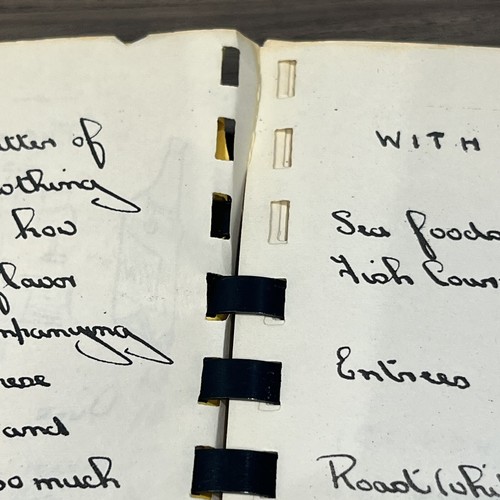 tter of
othing
how
flavor
mpanying
hese
and
so much
WITH
Sea foods
Fish Cour
Entrees
Roast (Whi